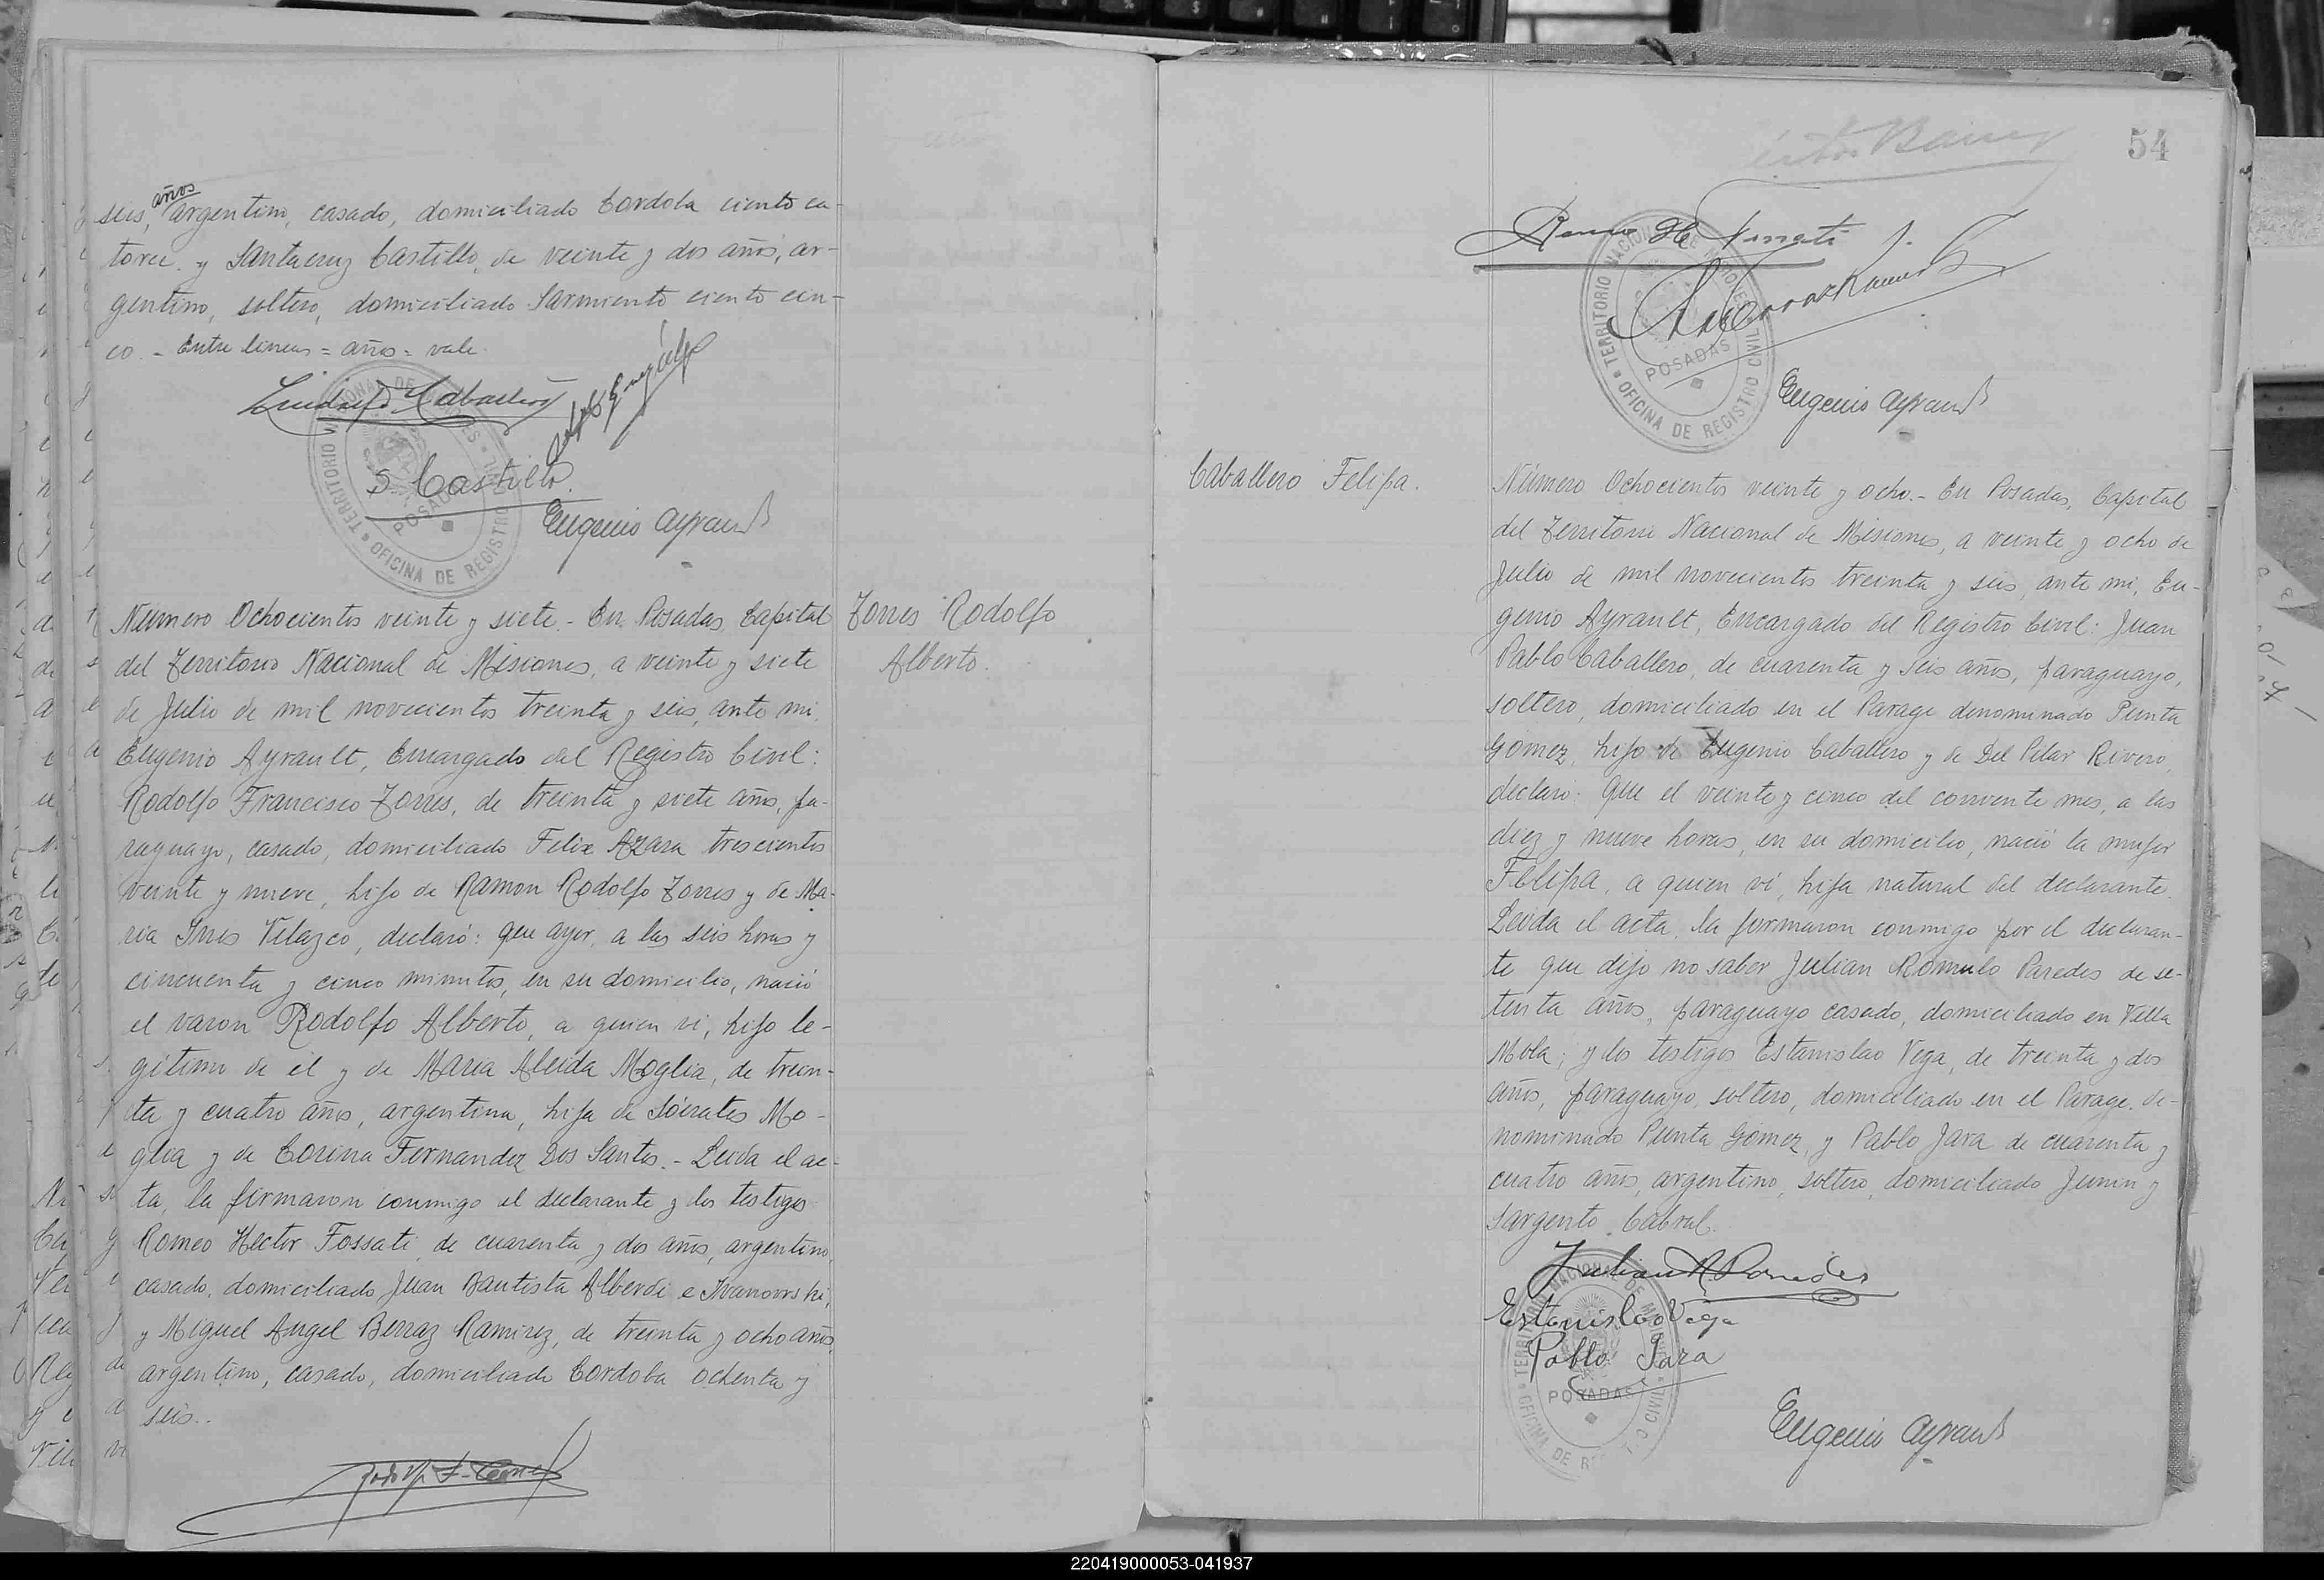 años
seis, argentino, casado, domiciliado Cordoba ciento ca-
torce y Santacruz Castillo, de veinte y dos años, ar-
gentino, soltero, domiciliado Sarmiento ciento cin-
co. - Entre lineas = años = vale.
S. Castillo
Eugenio Ayrault
TERRITORIO NACIONAL DE MISIONES
POSADAS
OFICINA DE REGISTRO CIVIL
Número Ochocientos veinte y siete. - En Posadas, Capital
del Territorio Nacional de Misiones, a veinte y siete
de Julio de mil novecientos treinta y seis, ante mi,
Eugenio Ayrault, Encargado del Registro Civil:
Rodolfo Francisco Torres, de treinta y siete años, pa-
raguayo, casado, domiciliado Felix Azara trescientos
veinte y nueve, hijo de Ramon Rodolfo Torres y de Ma-
ria Ines Velazco, declaró: que ayer, a las seis horas y
cincuenta y cinco minutos, en su domicilio, nació
el varon Rodolfo Alberto, a quien vi, hijo le-
gitimo de él y de Maria Aleida Moglia, de trein-
ta y cuatro años, argentina, hija de Sócrates Mo-
glia y de Corina Fernandez Dos Santos. - Leida el ac-
ta, la firmaron conmigo el declarante y los testigos
Romeo Hector Fossati, de cuarenta y dos años, argentino,
casado, domiciliado Juan Bautista Alberdi e Ivanowski,
y Miguel Angel Berraz Ramirez, de treinta y ocho años,
argentino, casado, domiciliado Cordoba ochenta y
seis..
Torres Rodolfo
Alberto.
54
TERRITORIO NACIONAL DE MISIONES
POSADAS
OFICINA DE REGISTRO CIVIL
Eugenio Ayrault
Caballero Felipa.
Número Ochocientos veinte y ocho. - En Posadas, Capital
del Territorio Nacional de Misiones, a veinte y ocho de
Julio de mil novecientos treinta y seis, ante mi, Eu-
genio Ayrault, Encargado del Registro Civil: Juan
Pablo Caballero, de cuarenta y seis años, paraguayo,
soltero, domiciliado en el Parage denominado Punta
Gomez, hijo de Eugenio Caballero y de Del Pilar Rivero,
declaró: que el veinte y cinco del corriente mes, a las
diez y nueve horas, en su domicilio, nació la mujer
Felipa, a quien vi, hija natural del declarante.
Leida el acta, la firmaron conmigo por el declaran-
te que dijo no saber Julian Romulo Paredes de se-
tenta años, paraguayo casado, domiciliado en Villa
Mola; y los testigos Estanislao Vega, de treinta y dos
años, paraguayo, soltero, domiciliado en el Parage de-
nominado Punta Gomez, y Pablo Jara de cuarenta y
cuatro años, argentino, soltero, domiciliado Junin y
Sargento Cabral.
Julian R. Paredes
Estanislao Vega
Pablo Jara
TERRITORIO NACIONAL DE MISIONES
POSADAS
OFICINA DE REGISTRO CIVIL
Eugenio Ayrault
220419000053-041937